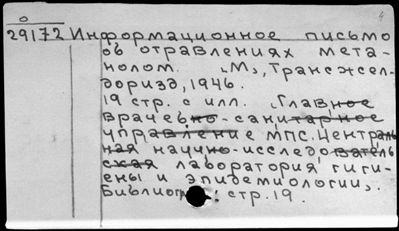 4
29172 Информационное письмо
об отравлениях мета-
нолом. „М", Трансжел-
дориздат, 1946.
19 стр. с илл. „Главное
врачебно-санитарное
управление МПС. Централь-
ная научно-исследователь-
ская лаборатория гиги-
ены и эпидемиологии".
Библиогр.: стр. 19.